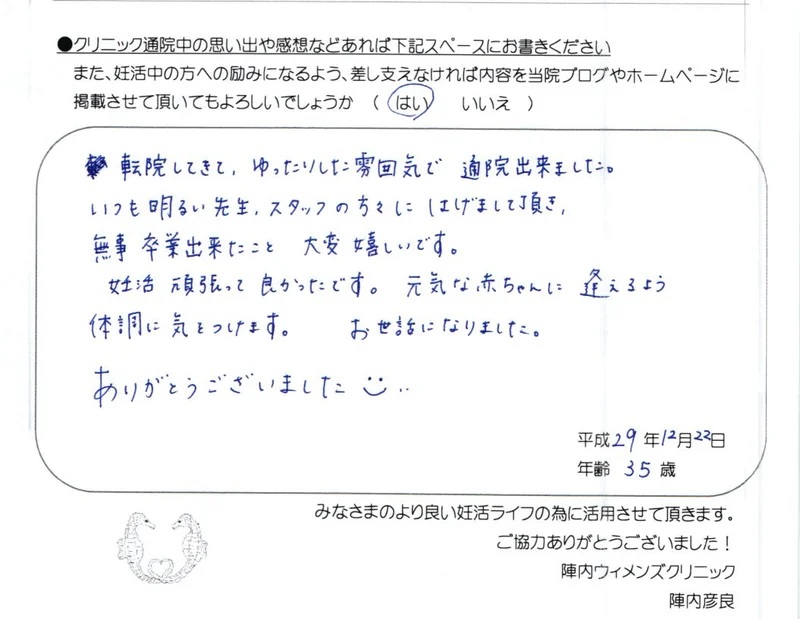 ●クリニック通院中の思い出や感想などあれば下記スペースにお書きください
また、妊活中の方への励みになるよう、差し支えなければ内容を当院ブログやホームページに
掲載させて頂いてもよろしいでしょうか （ はい いいえ ）
転院してきて、ゆったりした雰囲気で 通院出来ました。
いつも明るい先生、スタッフの方々に はげまして頂き、
無事 卒業出来たこと 大変 嬉しいです。
妊活 頑張って 良かったです。 元気な赤ちゃんに 逢えるよう
体調に 気をつけます。 お世話になりました。
ありがとうございました
平成 29 年 12 月 22 日
年齢 35 歳
みなさまのより良い妊活ライフの為に活用させて頂きます。
ご協力ありがとうございました！
陣内ウィメンズクリニック
陣内彦良